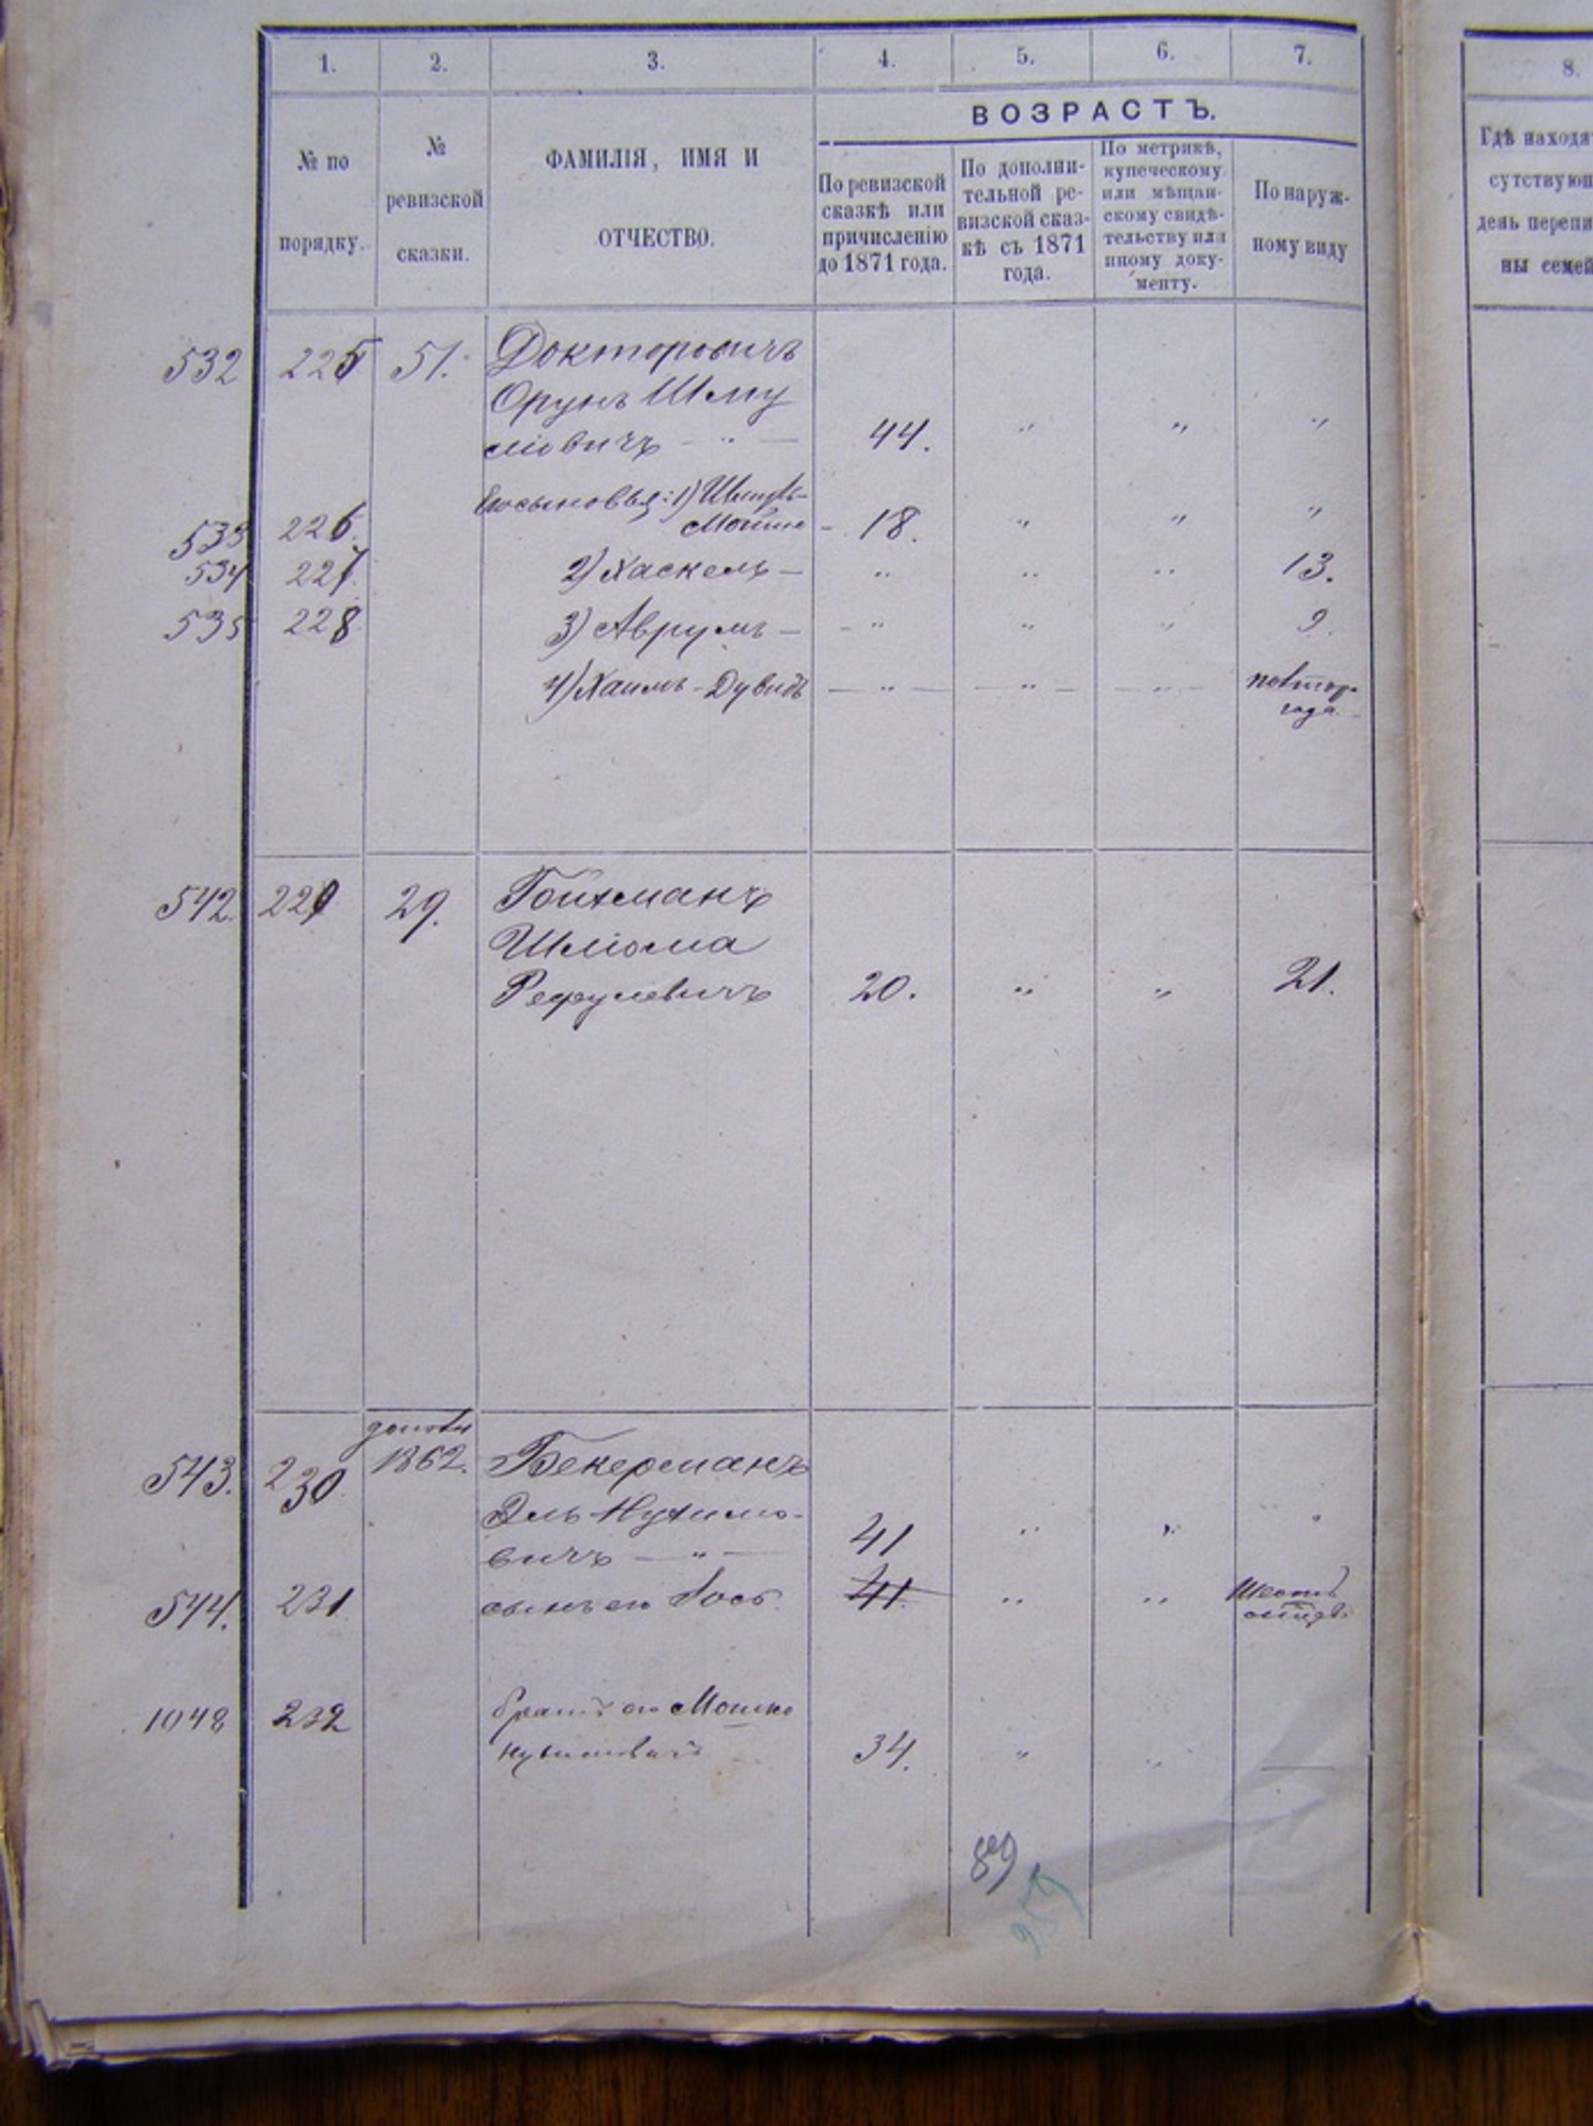 1. 2. 3. 4. 5. 6. 7. 8.
ВОЗРАСТЪ.
№ по
порядку.
№
ревизской
сказки.
ФАМИЛІЯ, ИМЯ И
ОТЧЕСТВО.
По ревизской
сказкѣ или
причисленію
до 1871 года.
По дополни-
тельной ре-
визской сказ-
кѣ съ 1871
года.
По метрикѣ,
купеческому
или мѣщан-
скому свидѣ-
тельству или
иному доку-
менту.
По наруж-
ному виду
Гдѣ находя
сутствующ
день перепи
ны семей
532 225 51. Докторовичъ
Орунъ Шму
ліовичъ — " — 44. " " "
Его сыновья: 1) Шмуль-
533 226. Мошко - 18. " " "
534 227. 2) Хаскель — " " " 13.
535 228 3) Аврумъ — - " " " 9.
4) Хаимъ - Дувидъ — " — — " — — " — полтор.
года.
542. 229 29. Гойхманъ
Шліома
Рефулевичъ 20. " " 21.
543. 230 1862. Бекерманъ
Эль Нухимо-
вичъ — " — 41 " " "
544. 231 сынъ его Іось 41. " " Шесть
1048 232 братъ его Мошко
Нухимовичъ 34. " " —
89
959